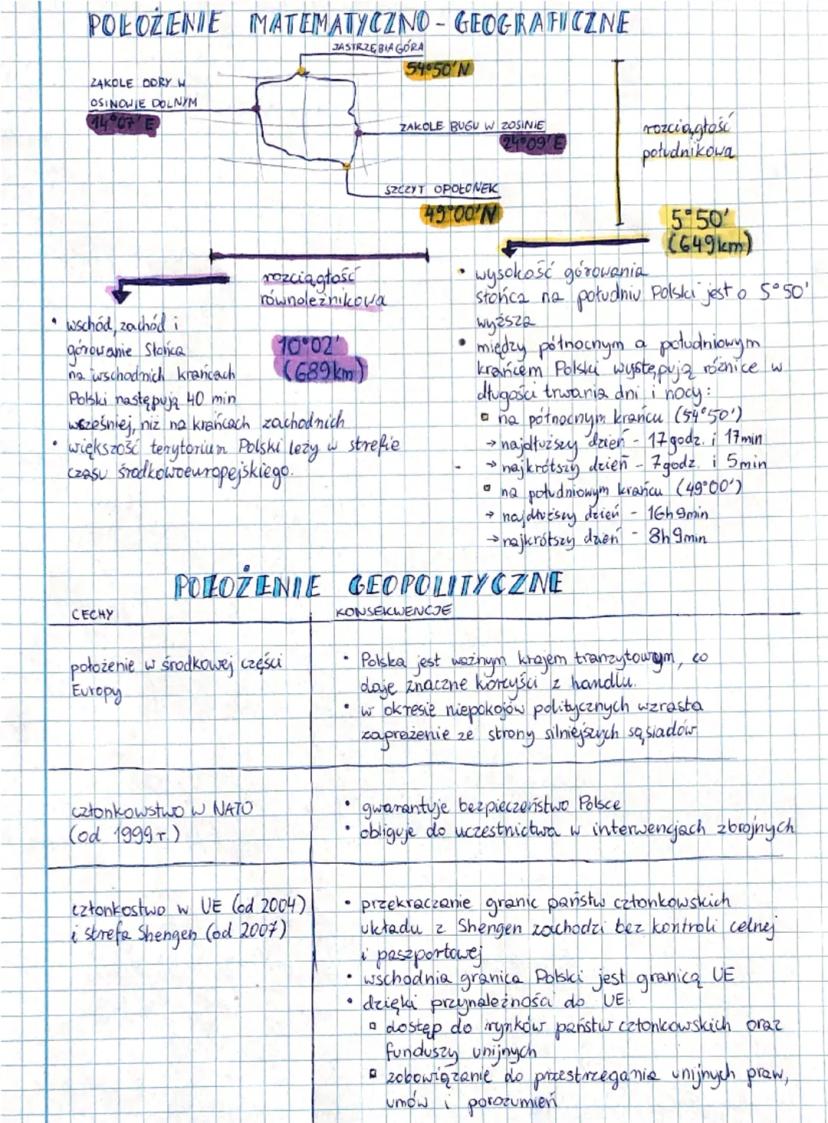 POŁOŻENIE MATEMATYCZNO-GEOGRAFICZNE
JASTRZĘBIA GÓRA
54°50'N
ZAKOLE ODRY W
OSINOWIE DOLNYM
14°07'E
ZAKOLE BUGU W ZOSINIE
24°09'E
SZCZYT OPOŁONEK
49°00'N
rozciągłość
południkowa
5°50'
(649km)
rozciągłość
równoleżnikowa
10°02'
(689km)
• wschód, zachód i
górowanie Słońca
na wschodnich krańcach
Polski następują 40 min
wcześniej, niż na krańcach zachodnich
• większość terytorium Polski leży w strefie
czasu środkowoeuropejskiego.
• wysokość górowania
słońca na południu Polski jest o 5°50'
wyższa
• między północnym a południowym
krańcem Polski występują różnice w
długości trwania dni i nocy:
▫ na północnym krańcu (54°50')
→ najdłuższy dzień - 17godz. i 17min
→ najkrótszy dzień - 7godz. i 5min
▫ na południowym krańcu (49°00')
→ najdłuższy dzień - 16h 9min
→ najkrótszy dzień - 8h 9min
POŁOŻENIE GEOPOLITYCZNE
CECHY
KONSEKWENCJE
położenie w środkowej części
Europy
• Polska jest ważnym krajem tranzytowym, co
daje znaczne korzyści z handlu.
• w okresie niepokojów politycznych wzrasta
zagrożenie ze strony silniejszych sąsiadów
członkowstwo w NATO
(od 1999r)
• gwarantuje bezpieczeństwo Polsce
• obliguje do uczestnictwa w interwencjach zbrojnych
członkostwo w UE (od 2004)
i strefa Shengen (od 2007)
• przekraczanie granic państw członkowskich
układu z Shengen zachodzi bez kontroli celnej
i paszportowej
• wschodnia granica Polski jest granicą UE
• dzięki przynależności do UE:
▫ dostęp do rynków państw członkowskich oraz
funduszy unijnych
▫ zobowiązanie do przestrzegania unijnych praw,
umów i porozumień